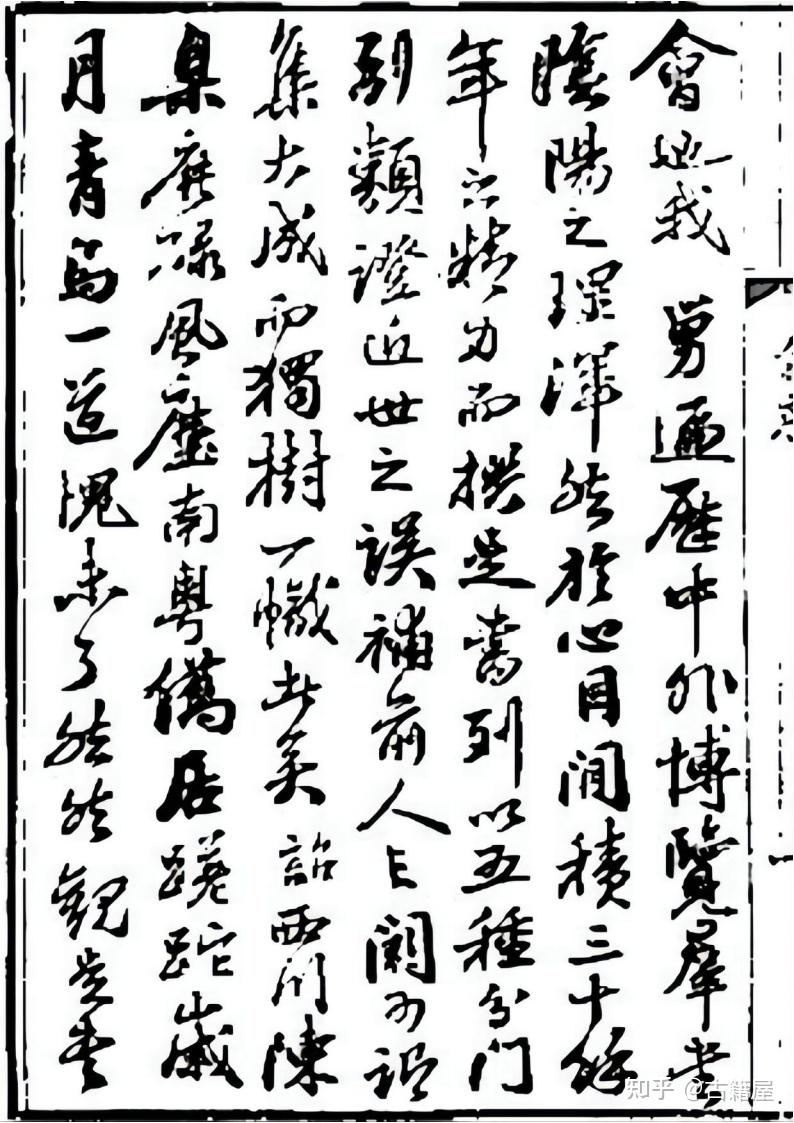 會迺我 舅遍歷中外博覽羣書
陰陽之理渾然於心目間積三十餘
年之精力而撰是書列以五種分門
別類證近世之誤補前人之闕可謂
集大成而獨樹一幟者矣 西 陳
臬 碌風塵南粵僑居蹉跎歲
月青烏一道愧未了然然觀是書
知乎 @古籍屋